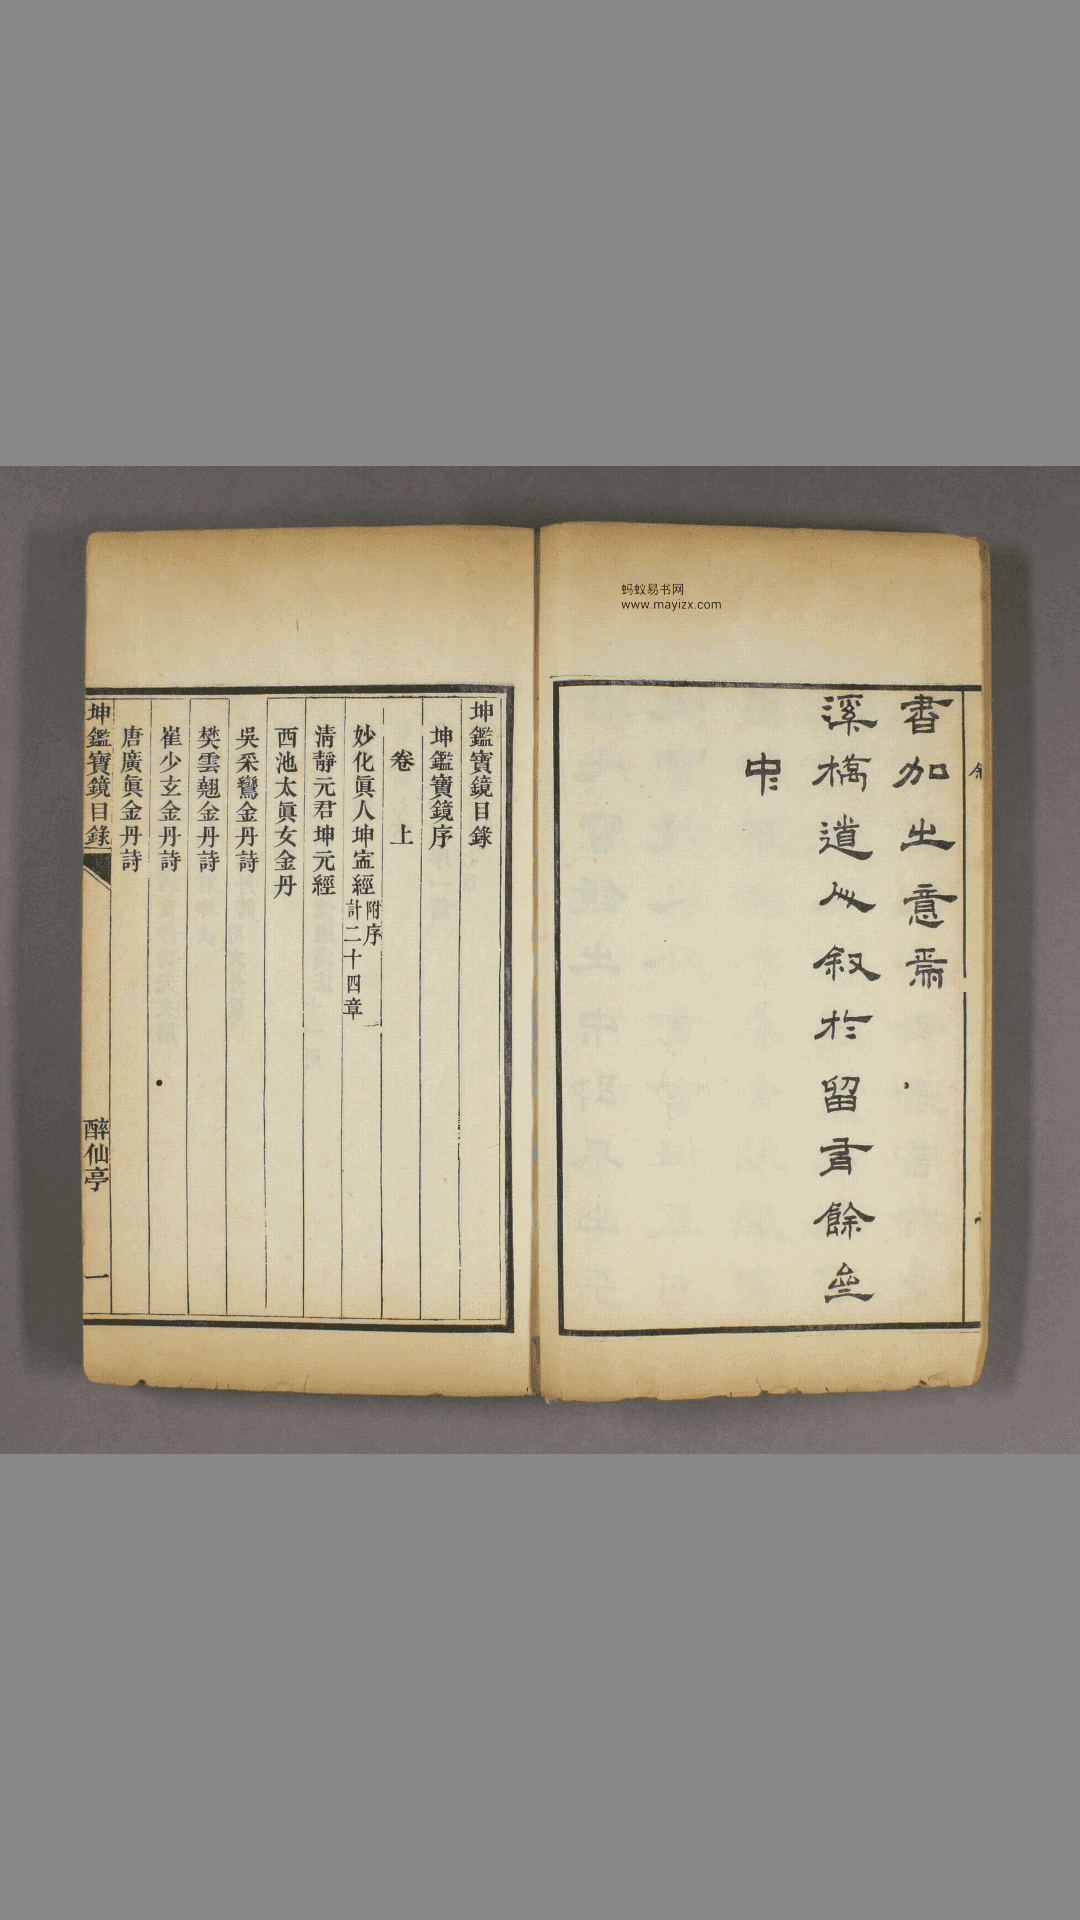 蚂蚁易书网
www.mayizx.com
書加出意焉
溪橋道人叙於留有餘齋
中
坤鑑寶鏡目錄
坤鑑寶鏡序
卷上
妙化眞人坤寍經附序計二十四章
淸靜元君坤元經
西池太眞女金丹
吳采鸞金丹詩
樊雲翹金丹詩
崔少玄金丹詩
唐廣眞金丹詩
坤鑑寶鏡目錄
醉仙亭
一